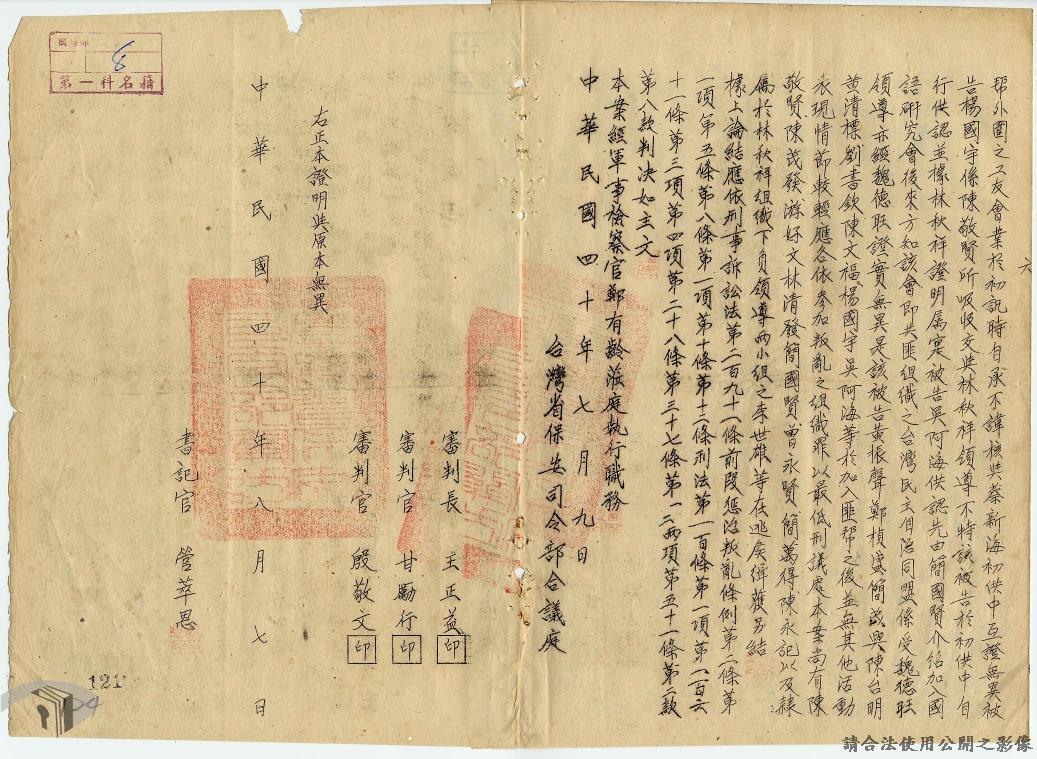 六
幇外圍之工友會業於初訊時自承不諱核與蔡新海初供中互證無異被
告楊國宇係陳敬賢所吸收交與林秋祥領導不特該被告於初供中自
行供認並據林秋祥證明屬實被告吳阿海供認先由簡國賢介紹加入國
語研究會後來方知該會即共匪組織之台灣民主自治同盟係受魏德旺
領導亦經魏德旺證實無異是該被告黃振聲鄭楨盛簡啟與陳台明
黃清標劉書欽陳文福楊國宇吳阿海等於加入匪幇之後並無其他活動
表現情節較輕應各依參加叛亂之組織罪以最低刑議處本案尚有陳
敬賢陳茂發游好文林清發簡國賢曾永賢簡萬得陳永記以及隸
屬於林秋祥組織下負領導兩小組之李世雄等在逃矦緝獲另結
據上論結應依刑事訴訟法第二百九十一條前段懲治叛亂條例第二條第
一項第五條第八條第一項第十條第十二條刑法第一百條第一項第一百六
十一條第三項第四項第二十八條第三十七條第一二兩項第五十一條第二款
第八款判决如主文
本案經軍事檢察官鄭有齡蒞庭執行職務
中華民國四十年七月九日
台灣省保安司令部合議庭
審判長 王正益 印
審判官 甘勵行 印
審判官 殷敬文 印
右正本證明與原本無異
書記官 管萃恩
中華民國四十年八月七日
8
第一科名籍
121
請合法使用公開之影像